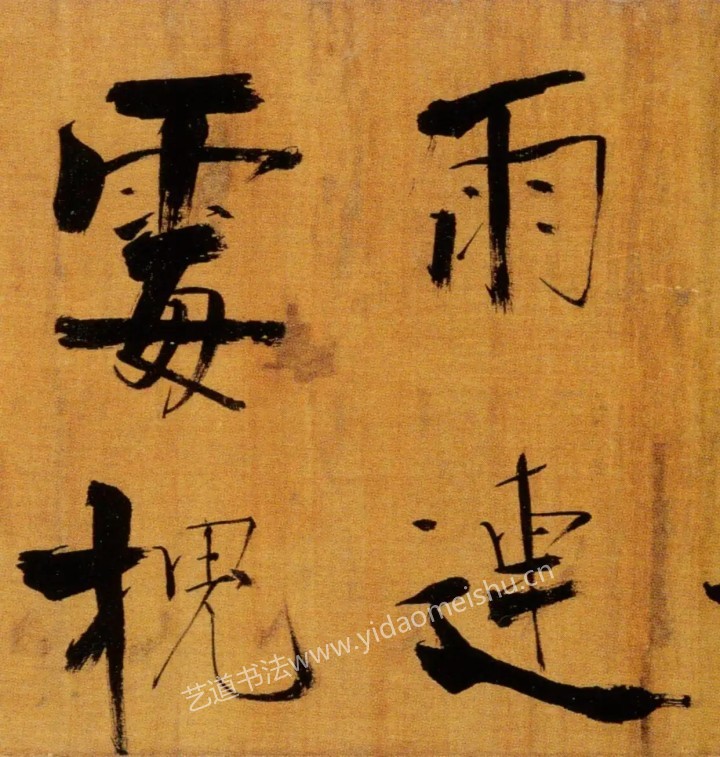 雨連
霉
艺道书法www.yidaomeishu.cn